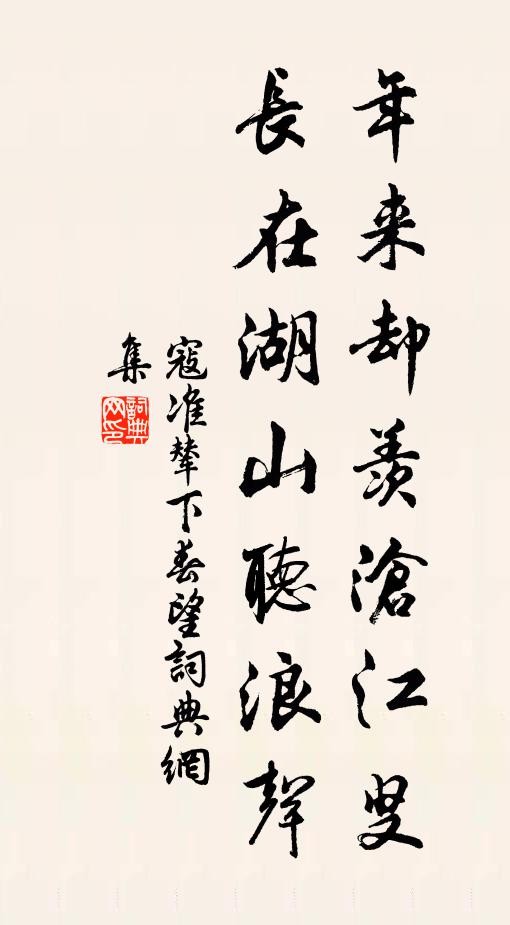 年来却羡滄江叟
長在湖山聽浪聲
寇准輦下春望詞典網
集
詞典網印